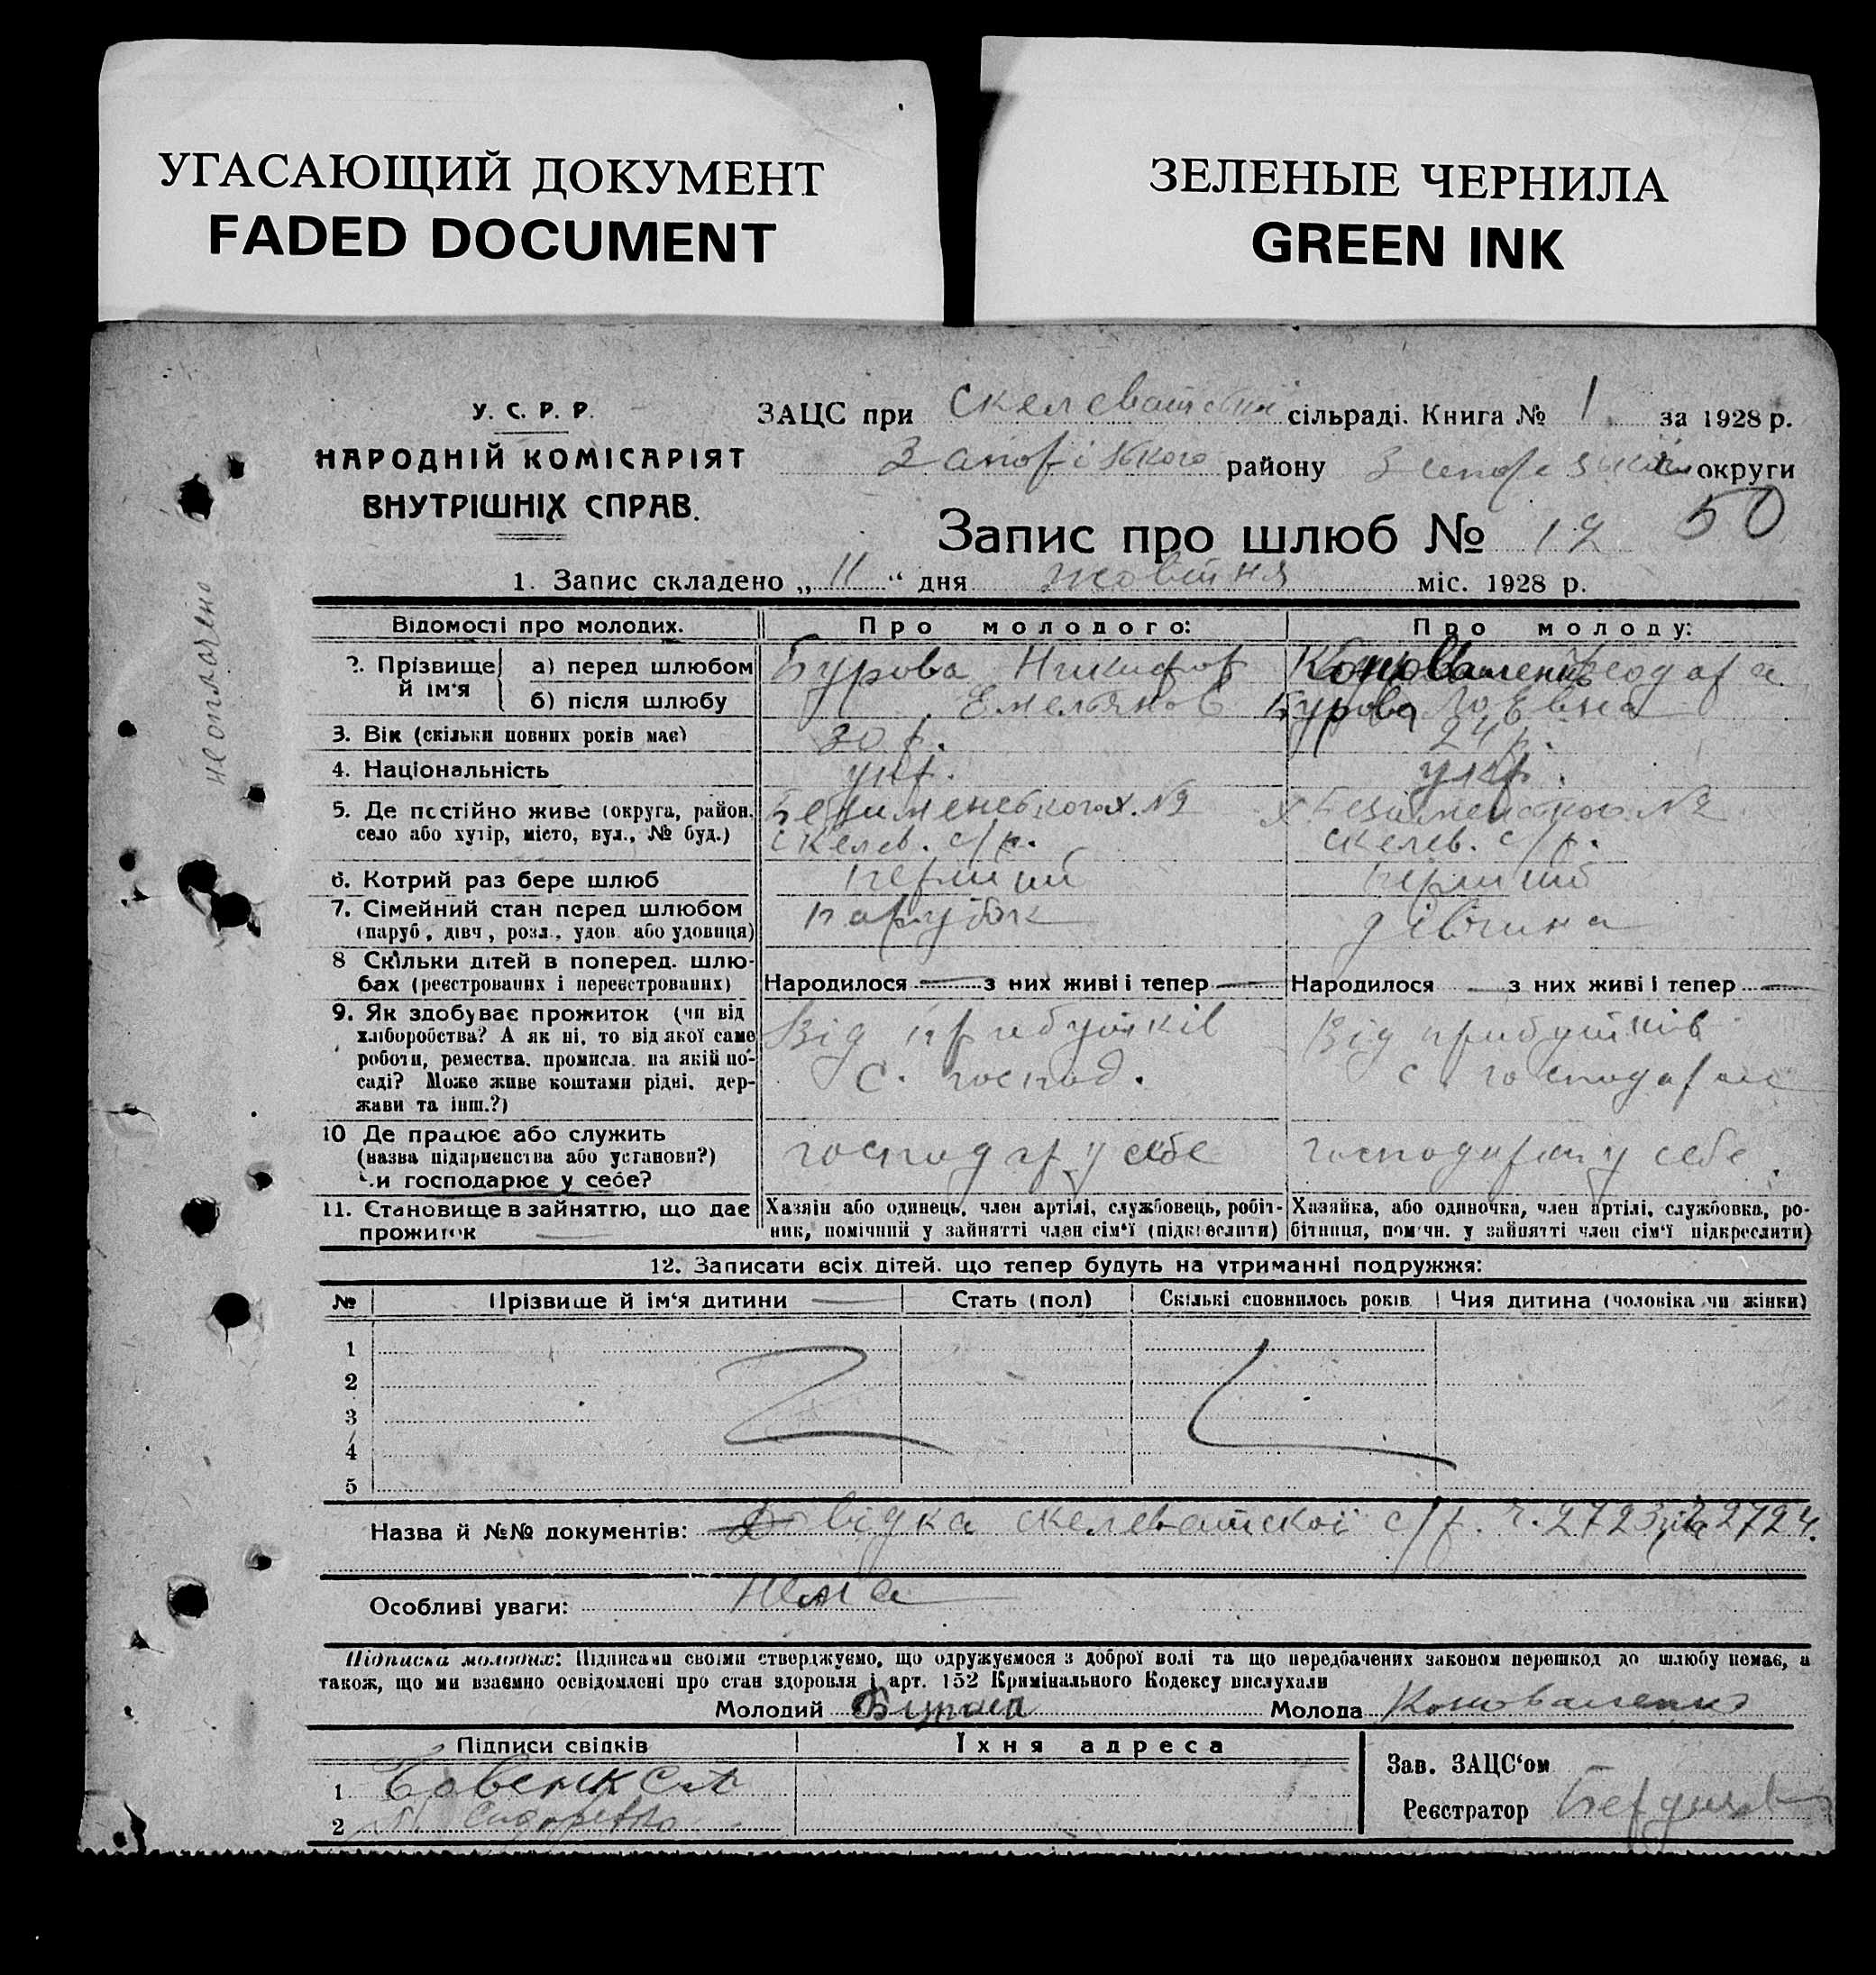 УГАСАЮЩИЙ ДОКУМЕНТ
FADED DOCUMENT
ЗЕЛЕНЫЕ ЧЕРНИЛА
GREEN INK
У. С. Р. Р.
НАРОДНІЙ КОМІСАРІЯТ
ВНУТРІШНІХ СПРАВ.
ЗАЦС при сільраді. Книга № 1 за 1928 р.
району округи
Запис про шлюб № 12 50
1. Запис складено „ 11 “ дня жовтня міс. 1928 р.
неоплачено
Відомості про молодих. Про молодого: Про молоду:
2. Прізвище й ім'я
а) перед шлюбом Бурова Никифор Коноваленко Феодора
б) після шлюбу Емельянов Бурова
3. Вік (скільки повних років має) 30 р. 24 р.
4. Національність укр. укр.
5. Де постійно живе (округа, район, х. №2 №2
село або хутір, місто, вул., № буд.) Скелев. с/р. скелев. с/р.
6. Котрий раз бере шлюб перший перший
7. Сімейний стан перед шлюбом парубок дівчина
(паруб., дівч., розл., удов. або удовиця)
8 Скільки дітей в поперед. шлю-
бах (реєстрованих і нереєстрованих) Народилося — з них живі і тепер — Народилося — з них живі і тепер —
9. Як здобуває прожиток (чи від Від прибутків Від прибутків
хліборобства? А як ні, то від якої саме
роботи, ремества, промисла, на якій по- с. господ. с. господарки
саді? Може живе коштами рідні, дер-
жави та інш.?)
10 Де працює або служить
(назва підприємства або установи?) господар у себе у себе
Чи господарює у себе?
11. Становище в зайняттю, що дає Хазяїн або одинець, член артілі, службовець, робіт- Хазяйка, або одиночка, член артілі, службовка, ро-
прожиток ник, помічний у зайнятті член сім'ї (підкреслити) бітниця, помічн. у зайнятті член сім'ї підкреслити)
12. Записати всіх дітей, що тепер будуть на утриманні подружжя:
№ Прізвище й ім'я дитини Стать (пол) Скількі сповнилось років Чия дитина (чоловіка чи жінки)
1
2
3
4
5
Назва й №№ документів: Довідка с/р. ч. 2723 та 2724.
Особливі уваги: нема
Підписка молодих: Підписами своїми стверджуємо, що одружуємося з доброї волі та що передбачених законом перешкод до шлюбу немає, а
також, що ми взаємно освідомлені про стан здоровля і арт. 152 Кримінального Кодексу вислухали
Молодий Бурова Молода Коноваленко
Підписи свідків Їхня адреса
Зав. ЗАЦС'ом
1
2 Сидоренко
Реєстратор